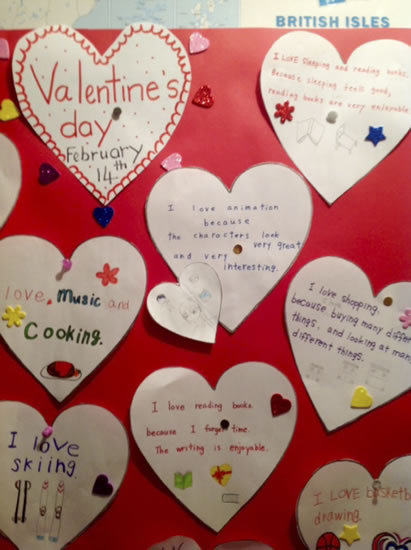 BRITISH ISLES
Valentine's
day
February
14th
I LOVE Sleeping and reading books.
Because sleeping feels good,
reading books are very enjoyable
I love animation
because
the characters look
very great
and very
interesting.
love, Music and
Cooking.
I love shopping.
because buying many differ
things, and looking at man
different things.
I love reading books.
because I forget time.
The writing is enjoyable.
I love
skiing.
I LOVE basketb
drawing.